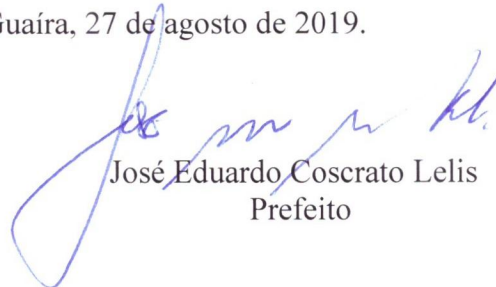 Guaíra, 27 de agosto de 2019.
José Eduardo Coscrato Lelis
Prefeito